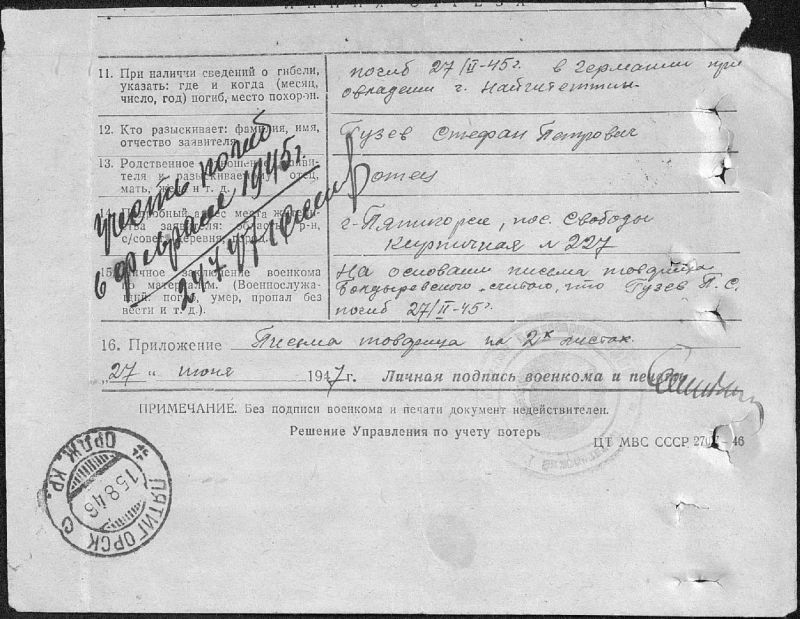 11. При наличии сведений о гибели, указать: где и когда (месяц, число, год) погиб, место похорон.
погиб 27/II-45г. в Германии при
овладении г. Найштеттин
12. Кто разыскивает: фамилия, имя, отчество заявителя
Гузев Стефан Петрович
13. Родственное заявителя к разыскиваемому отец, мать, жена и т. д.
отец
адрес места р-н, с/совет, деревня, город
г. Пятигорск, пос. Свободы
Кирпичная № 227
15. Личное заключение военкома по материалам. (Военнослужащий: погиб, умер, пропал без вести и т. д.)
На основании письма товарища
считаю, что Гузев П. С.
погиб 27/II-45г.
учесть погиб
в феврале 1945г.
16. Приложение Письма товарища на 2х листах
„27" июня 1947 г. Личная подпись военкома и печать
ПРИМЕЧАНИЕ. Без подписи военкома и печати документ недействителен.
Решение Управления по учету потерь
ЦТ МВС СССР 46
ПЯТИГОРСК С ОРДЖ. КР.
15.8.46